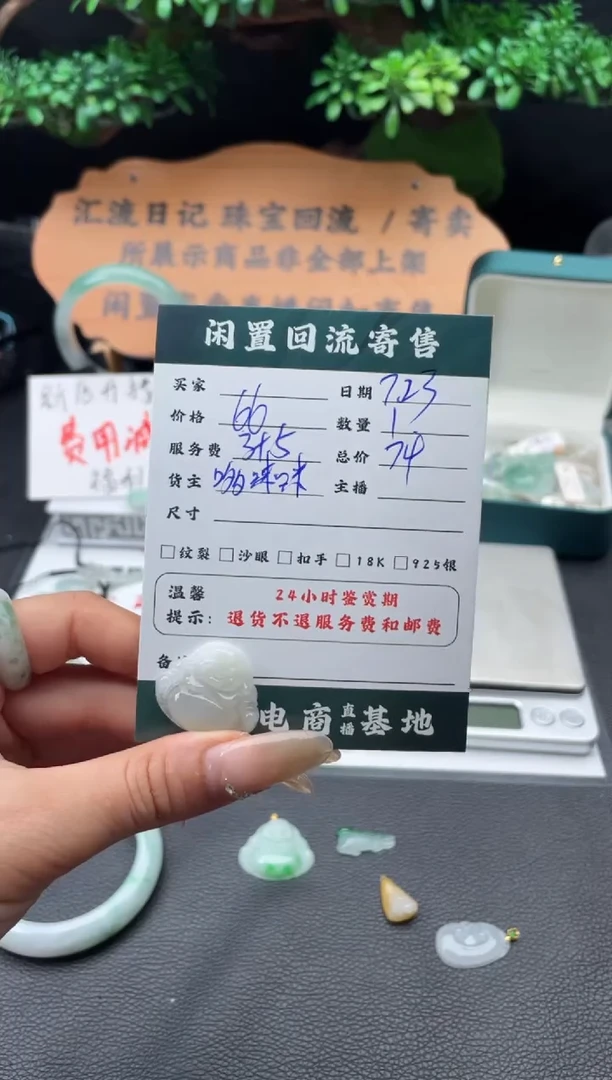 汇流日记 珠宝回流 / 寄卖
所展示商品非全部上架
闲置
费用减
闲置回流寄售
买家 日期 7.23
价格 66 数量 1.
服务费 3+5 总价 74
货主 主播
尺寸
纹裂 沙眼 扣手 18K 925银
温馨 24小时鉴赏期
提示: 退货不退服务费和邮费
备
电商直播基地